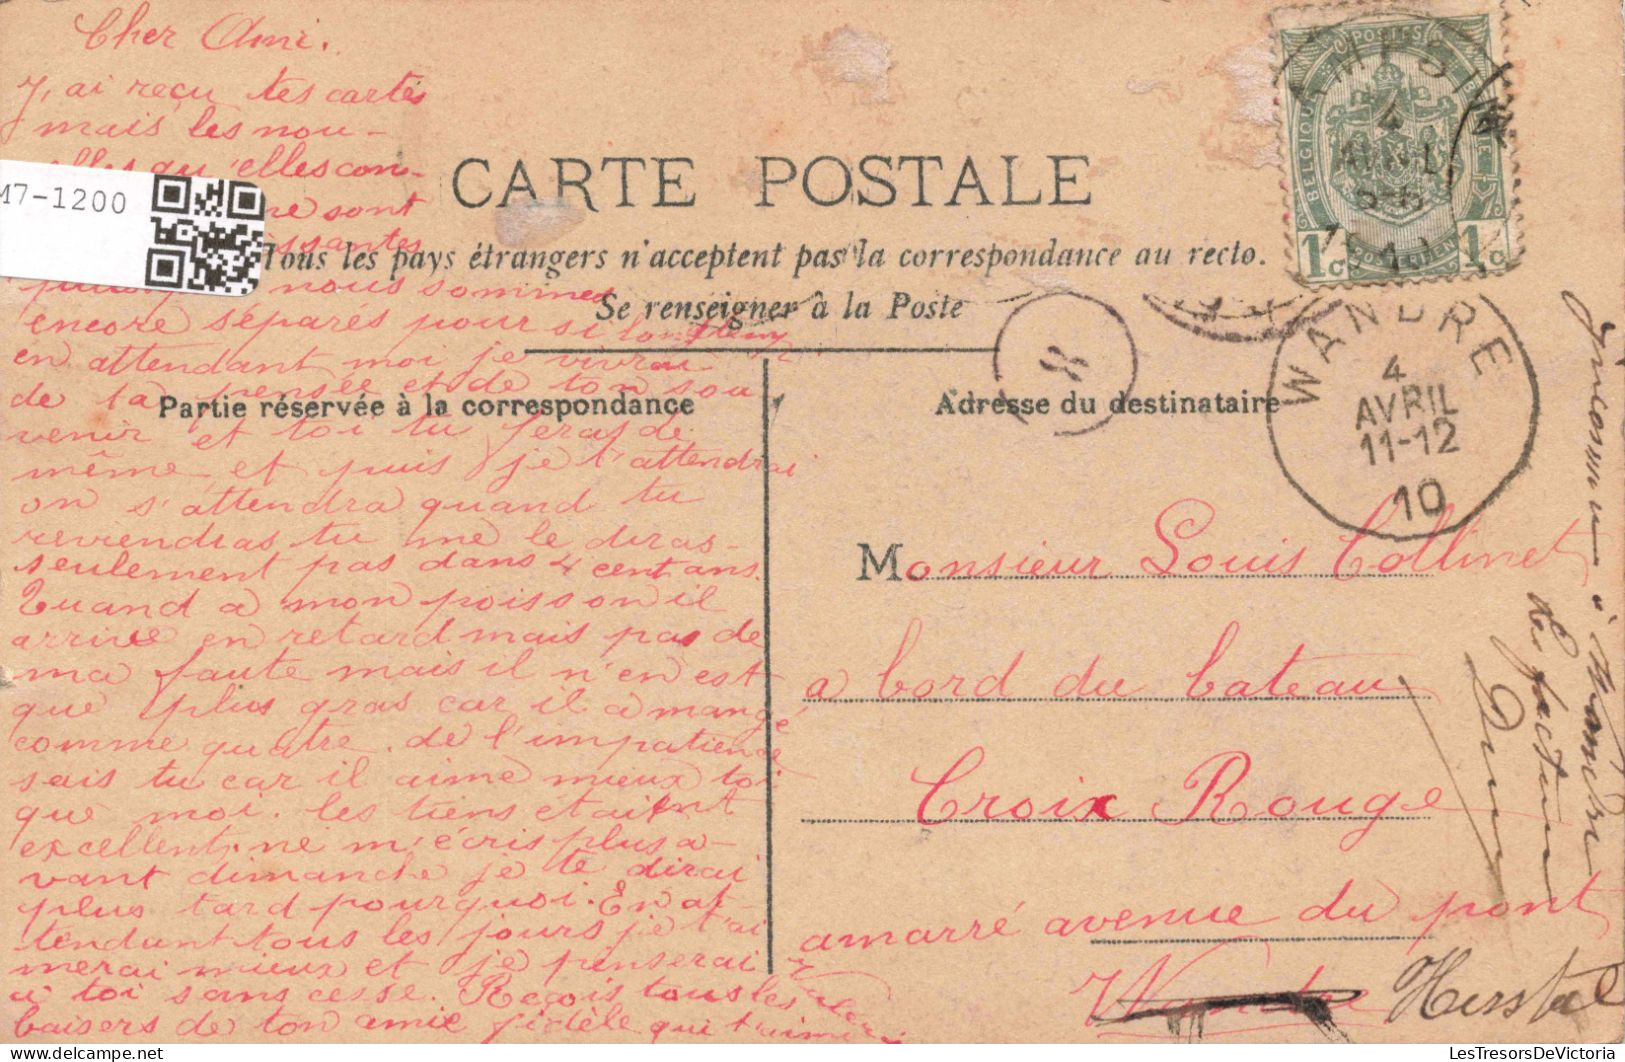 Cher Ami.
J'ai reçu tes cartes
mais les nou-
elles qu'elles con-
ne sont
issantes
M7-1200
nous sommes
encore séparés pour si longtemps
en attendant moi je vivrai
de ta pensée et de ton sou
venir et toi tu feras de
même et puis je t'attendrai
on s'attendra quand tu
reviendras tu me le diras-
seulement pas dans 4 cent ans.
Quand a mon poisson il
arrive en retard mais pas de
ma faute mais il n'en est
que plus gras car il a mangé
comme quatre. de l'impatience
sais tu car il aime mieux toi
que moi. les tiens étaient
excellent. ne m'écris plus a-
vant dimanche je te dirai
plus tard pourquoi. En at-
tendant tous les jours je t'ai
merai mieux et je penserai
a toi sans cesse. Reçois tous les
baisers de ton amie fidèle qui t'aime
CARTE POSTALE
Tous les pays étrangers n'acceptent pas la correspondance au recto.
Se renseigner à la Poste
Partie réservée à la correspondance
Adresse du destinataire
POSTES
BELGIQUE
BELGIE
1c 1c
4
AVRIL
WANDRE
4
AVRIL
11-12
10
Monsieur Louis Collinet
a bord du bateau
Croix Rouge
amarré avenue du pont
Wandre Herstal
Inconnu à Wandre
Le facteur
LesTresorsDeVictoria.com